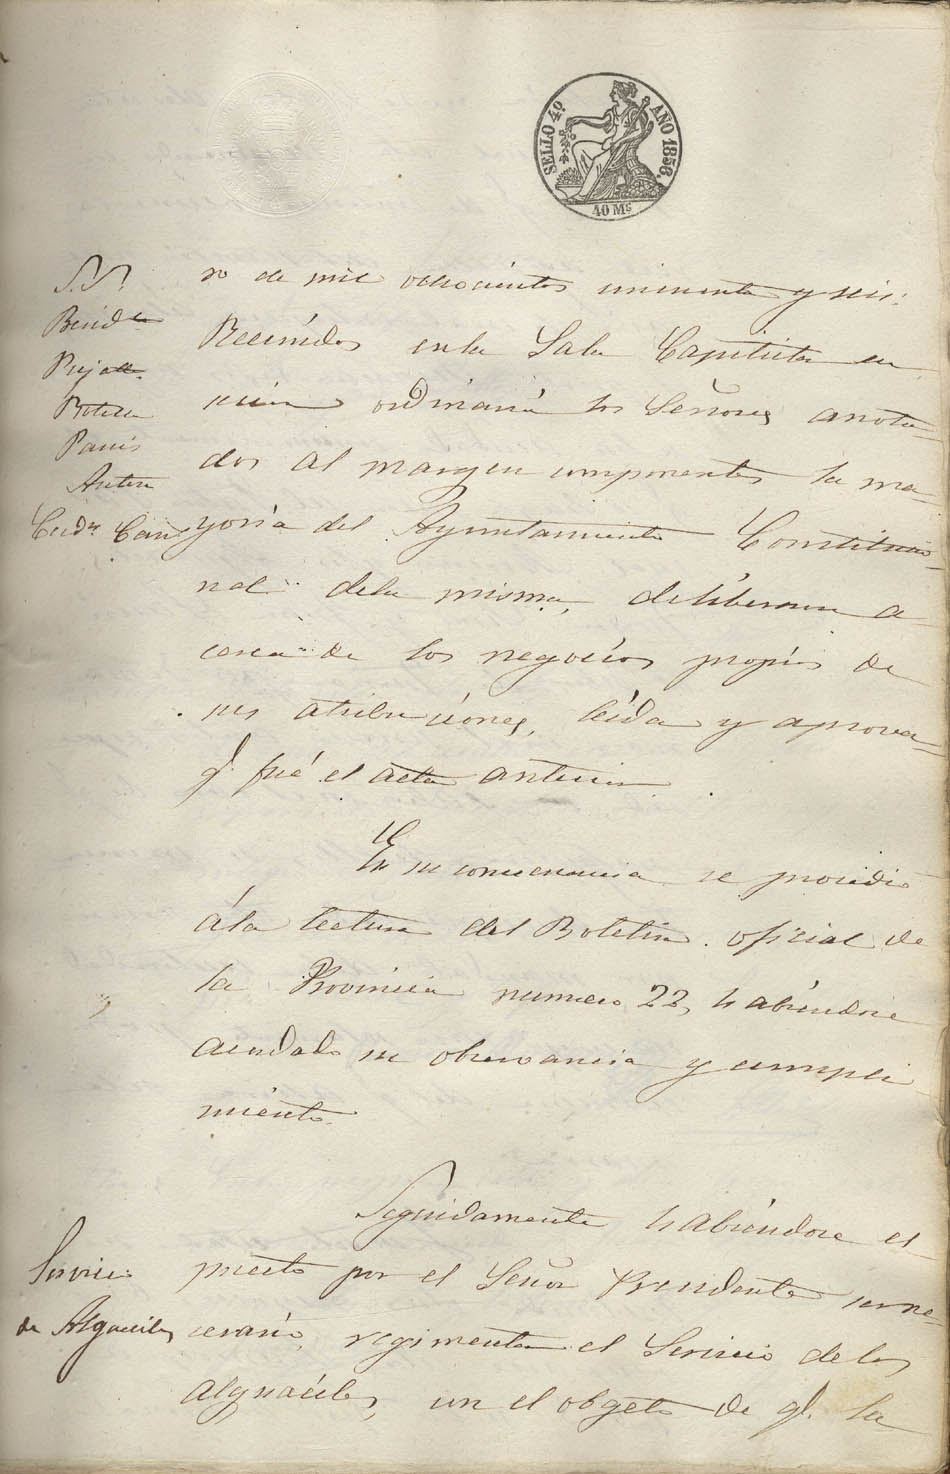 SELLO 4º AÑO 1858.
40 Ms
S.S.
Presid.te
Pujalte.
Botella
Antón
ro de mil ochocientos cincuenta y seis.
Reunidos en la Sala Capitular en
sesión ordinaria los Señores anota-
dos al margen componentes la ma
yoria del Ayuntamiento Constitucio-
nal dela misma, deliberaron a-
cerca de los negocios propios de
sus atribuciones, leida y aprova-
d.ª fué el acta anterior.
En su consecuencia se procedió
ála lectura del Boletin oficial de
la Provincia numero 22, habiendose
acordado su observancia y cumpli
miento.
Servicio
de Alguaciles
Seguidamente habiendose es
puesto por el Señor Presidente ser ne-
cesario, regimentar el Servicio de los
Alguaciles, con el obgeto de q.e la